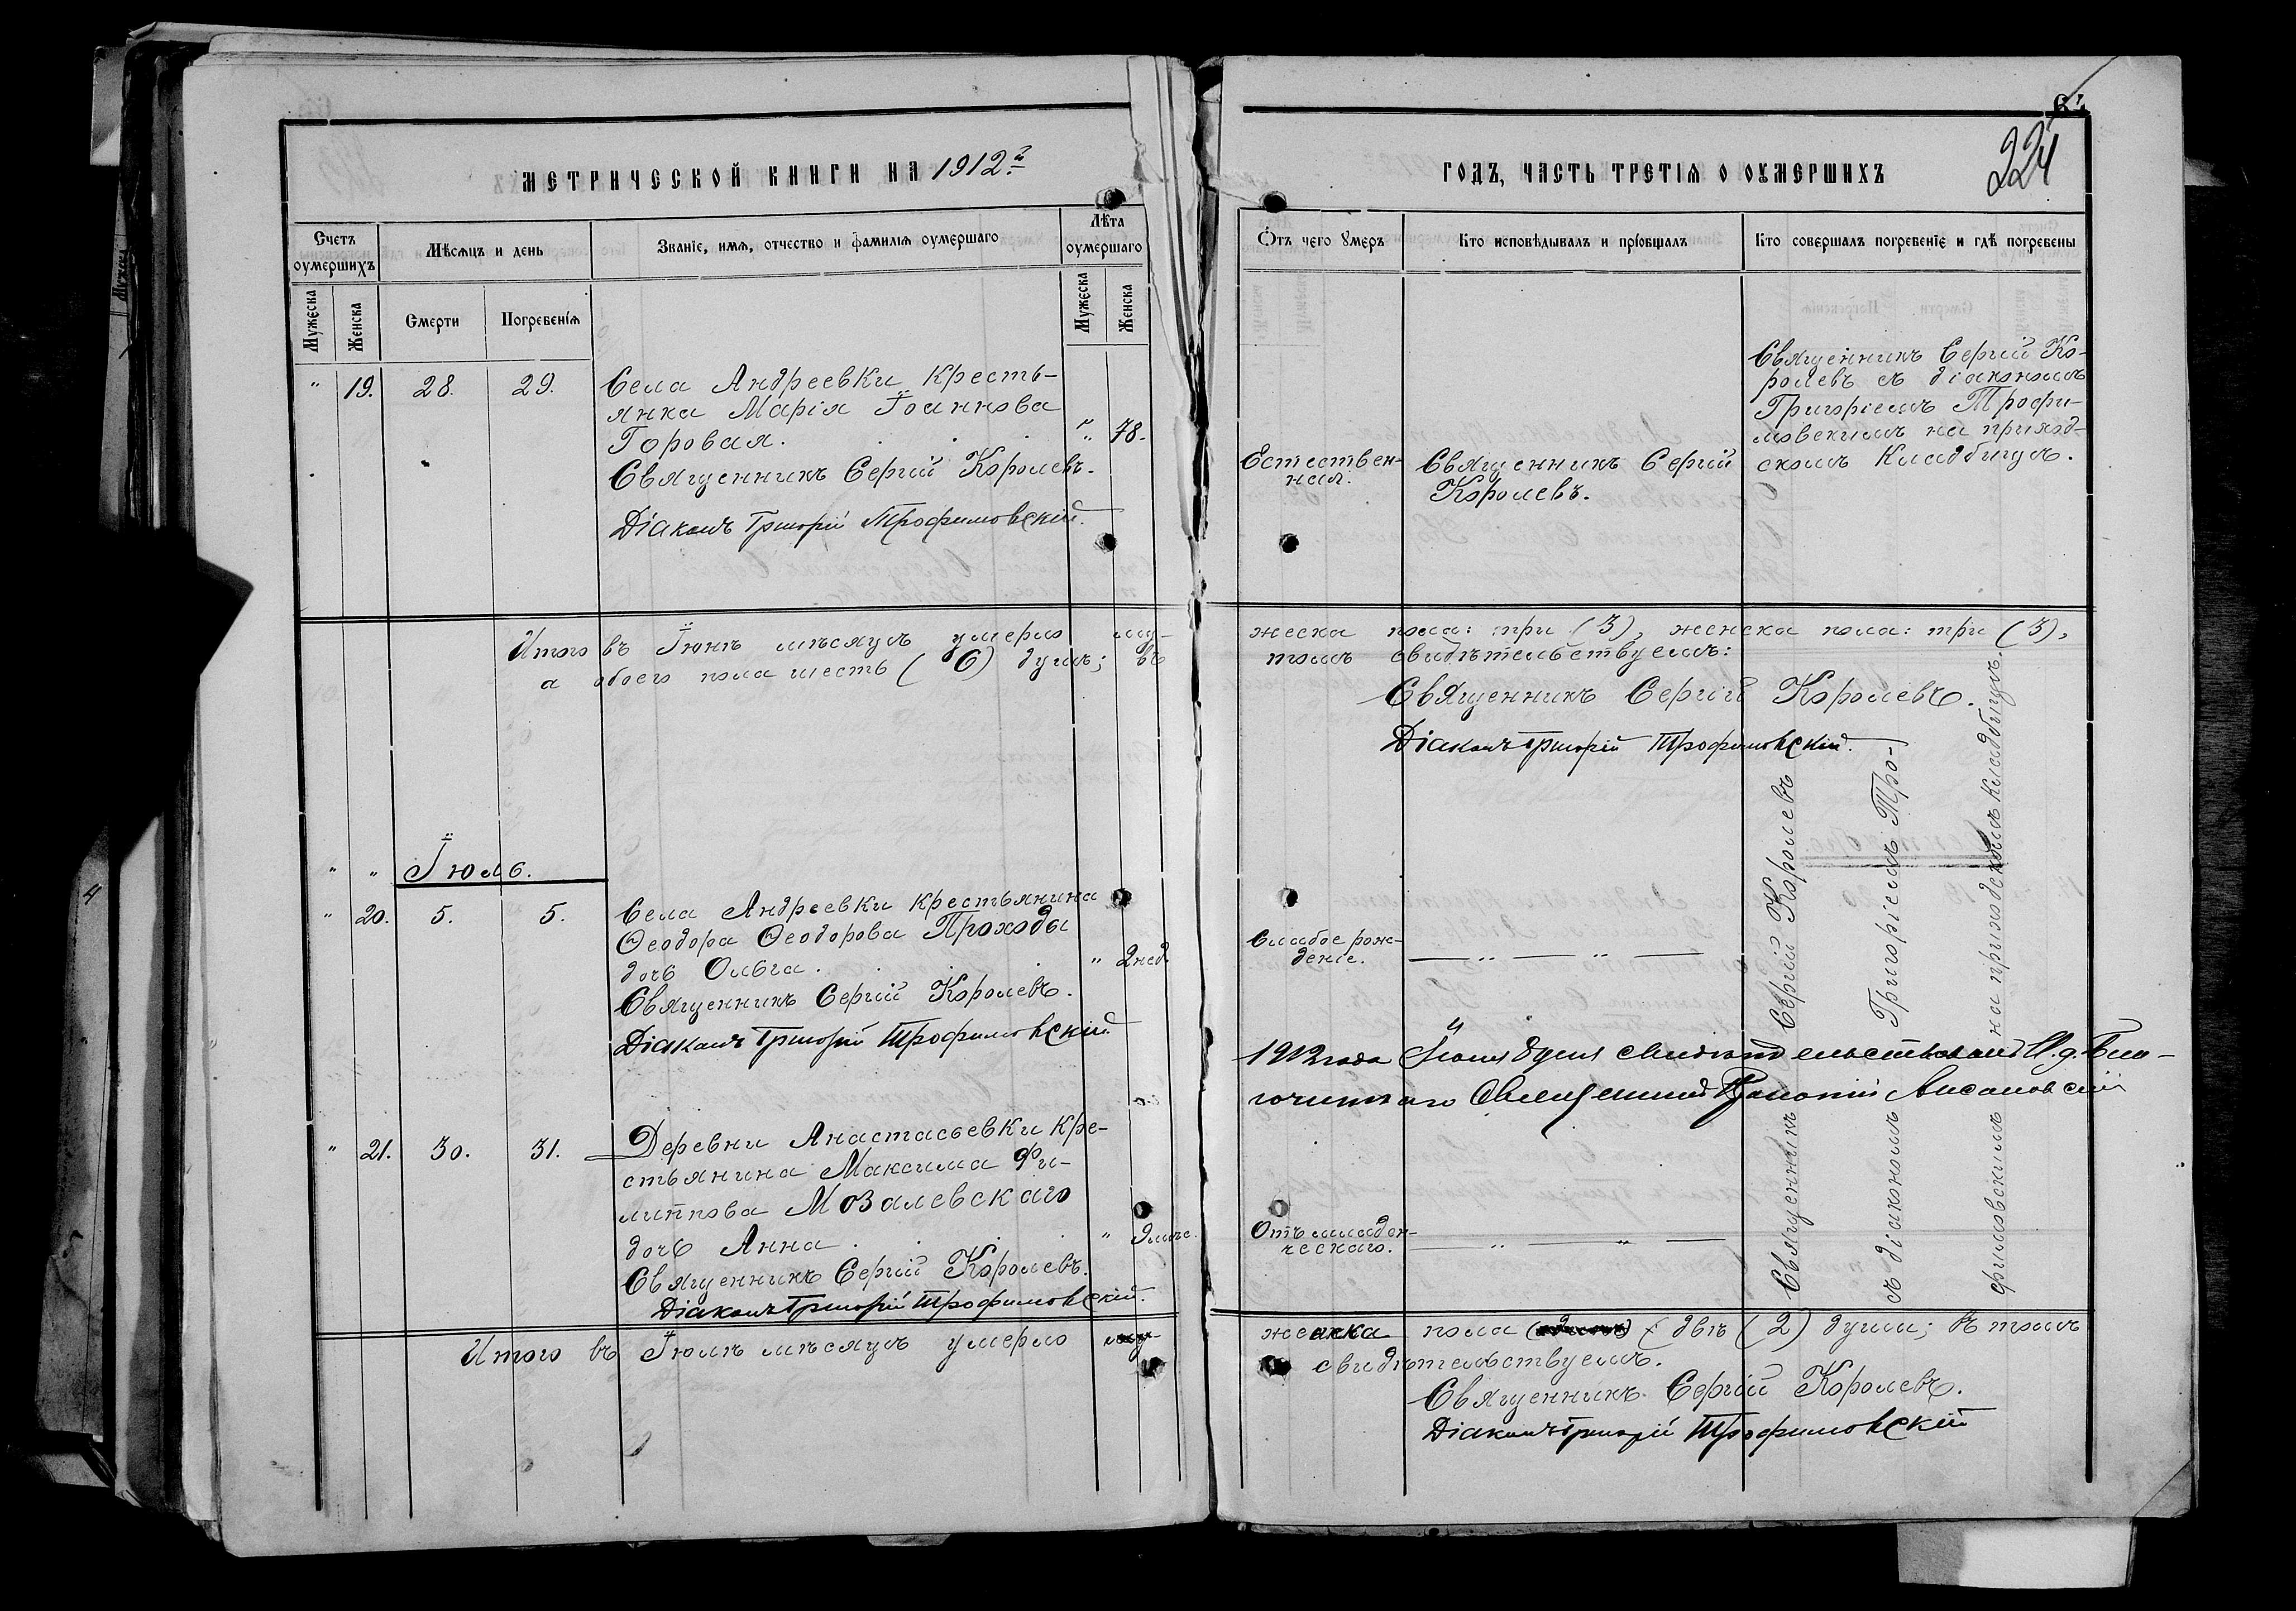 МЕТРИЧЕСКОЙ КНИГИ НА 1912й
Счетъ оумершихъ
Мѣсяцъ и день
Званіе, имя, отчество и фамилія оумершаго
Лѣта оумершаго
Мужеска
Женска
Смерти
Погребенія
Мужеска
Женска
" 19. 28. 29.
Села Андреевки кресть-
янка Марія Іоаннова
Горовая. " 78.
Священникъ Сергій Королевъ.
Діаконъ Григорій Трофимовскій.
Итого въ Іюнѣ мѣсяцѣ умерло му-
а обоего пола шесть (6) душъ; въ
" " Іюль.
" 20. 5. 5.
Села Андреевки крестьянина
Ѳеодора Ѳеодорова Проходы
дочь Ольга. " 2 нед.
Священникъ Сергій Королевъ.
Діаконъ Григорій Трофимовскій
" 21. 30. 31.
Деревни Анастасьевки кре-
стьянина Максима Фи-
липпова Мозалевскаго
дочь Анна "
Священникъ Сергій Королевъ.
Діаконъ Григорій Трофимовскій.
Итого въ Іюлѣ мѣсяцѣ умерло
224
ГОДЪ, ЧАСТЬ ТРЕТІЯ О ОУМЕРШИХЪ
Отъ чего умеръ
Кто исповѣдывалъ и пріобщалъ
Кто совершалъ погребеніе и гдѣ погребены
Естествен-
ная.
Священникъ Сергій
Королевъ.
Священникъ Сергій Ко-
ролевъ съ діакономъ
Григоріемъ Трофи-
мовскимъ на приход-
скомъ кладбищѣ.
жеска пола: три (3), женска пола: три (3),
томъ свидѣтельствуемъ:
Священникъ Сергій Королевъ.
Діаконъ Григорій Трофимовскій.
Слабое рож-
деніе.
— " — " —
Священникъ Сергій Королевъ
съ діакономъ Григоріемъ Тро-
фимовскимъ на приходскомъ кладбищѣ.
1912 года
Священникъ
Отъ младен-
ческаго.
— " — " —
женска пола две (2) души; въ томъ
свидѣтельствуемъ.
Священникъ Сергій Королевъ.
Діаконъ Григорій Трофимовскій